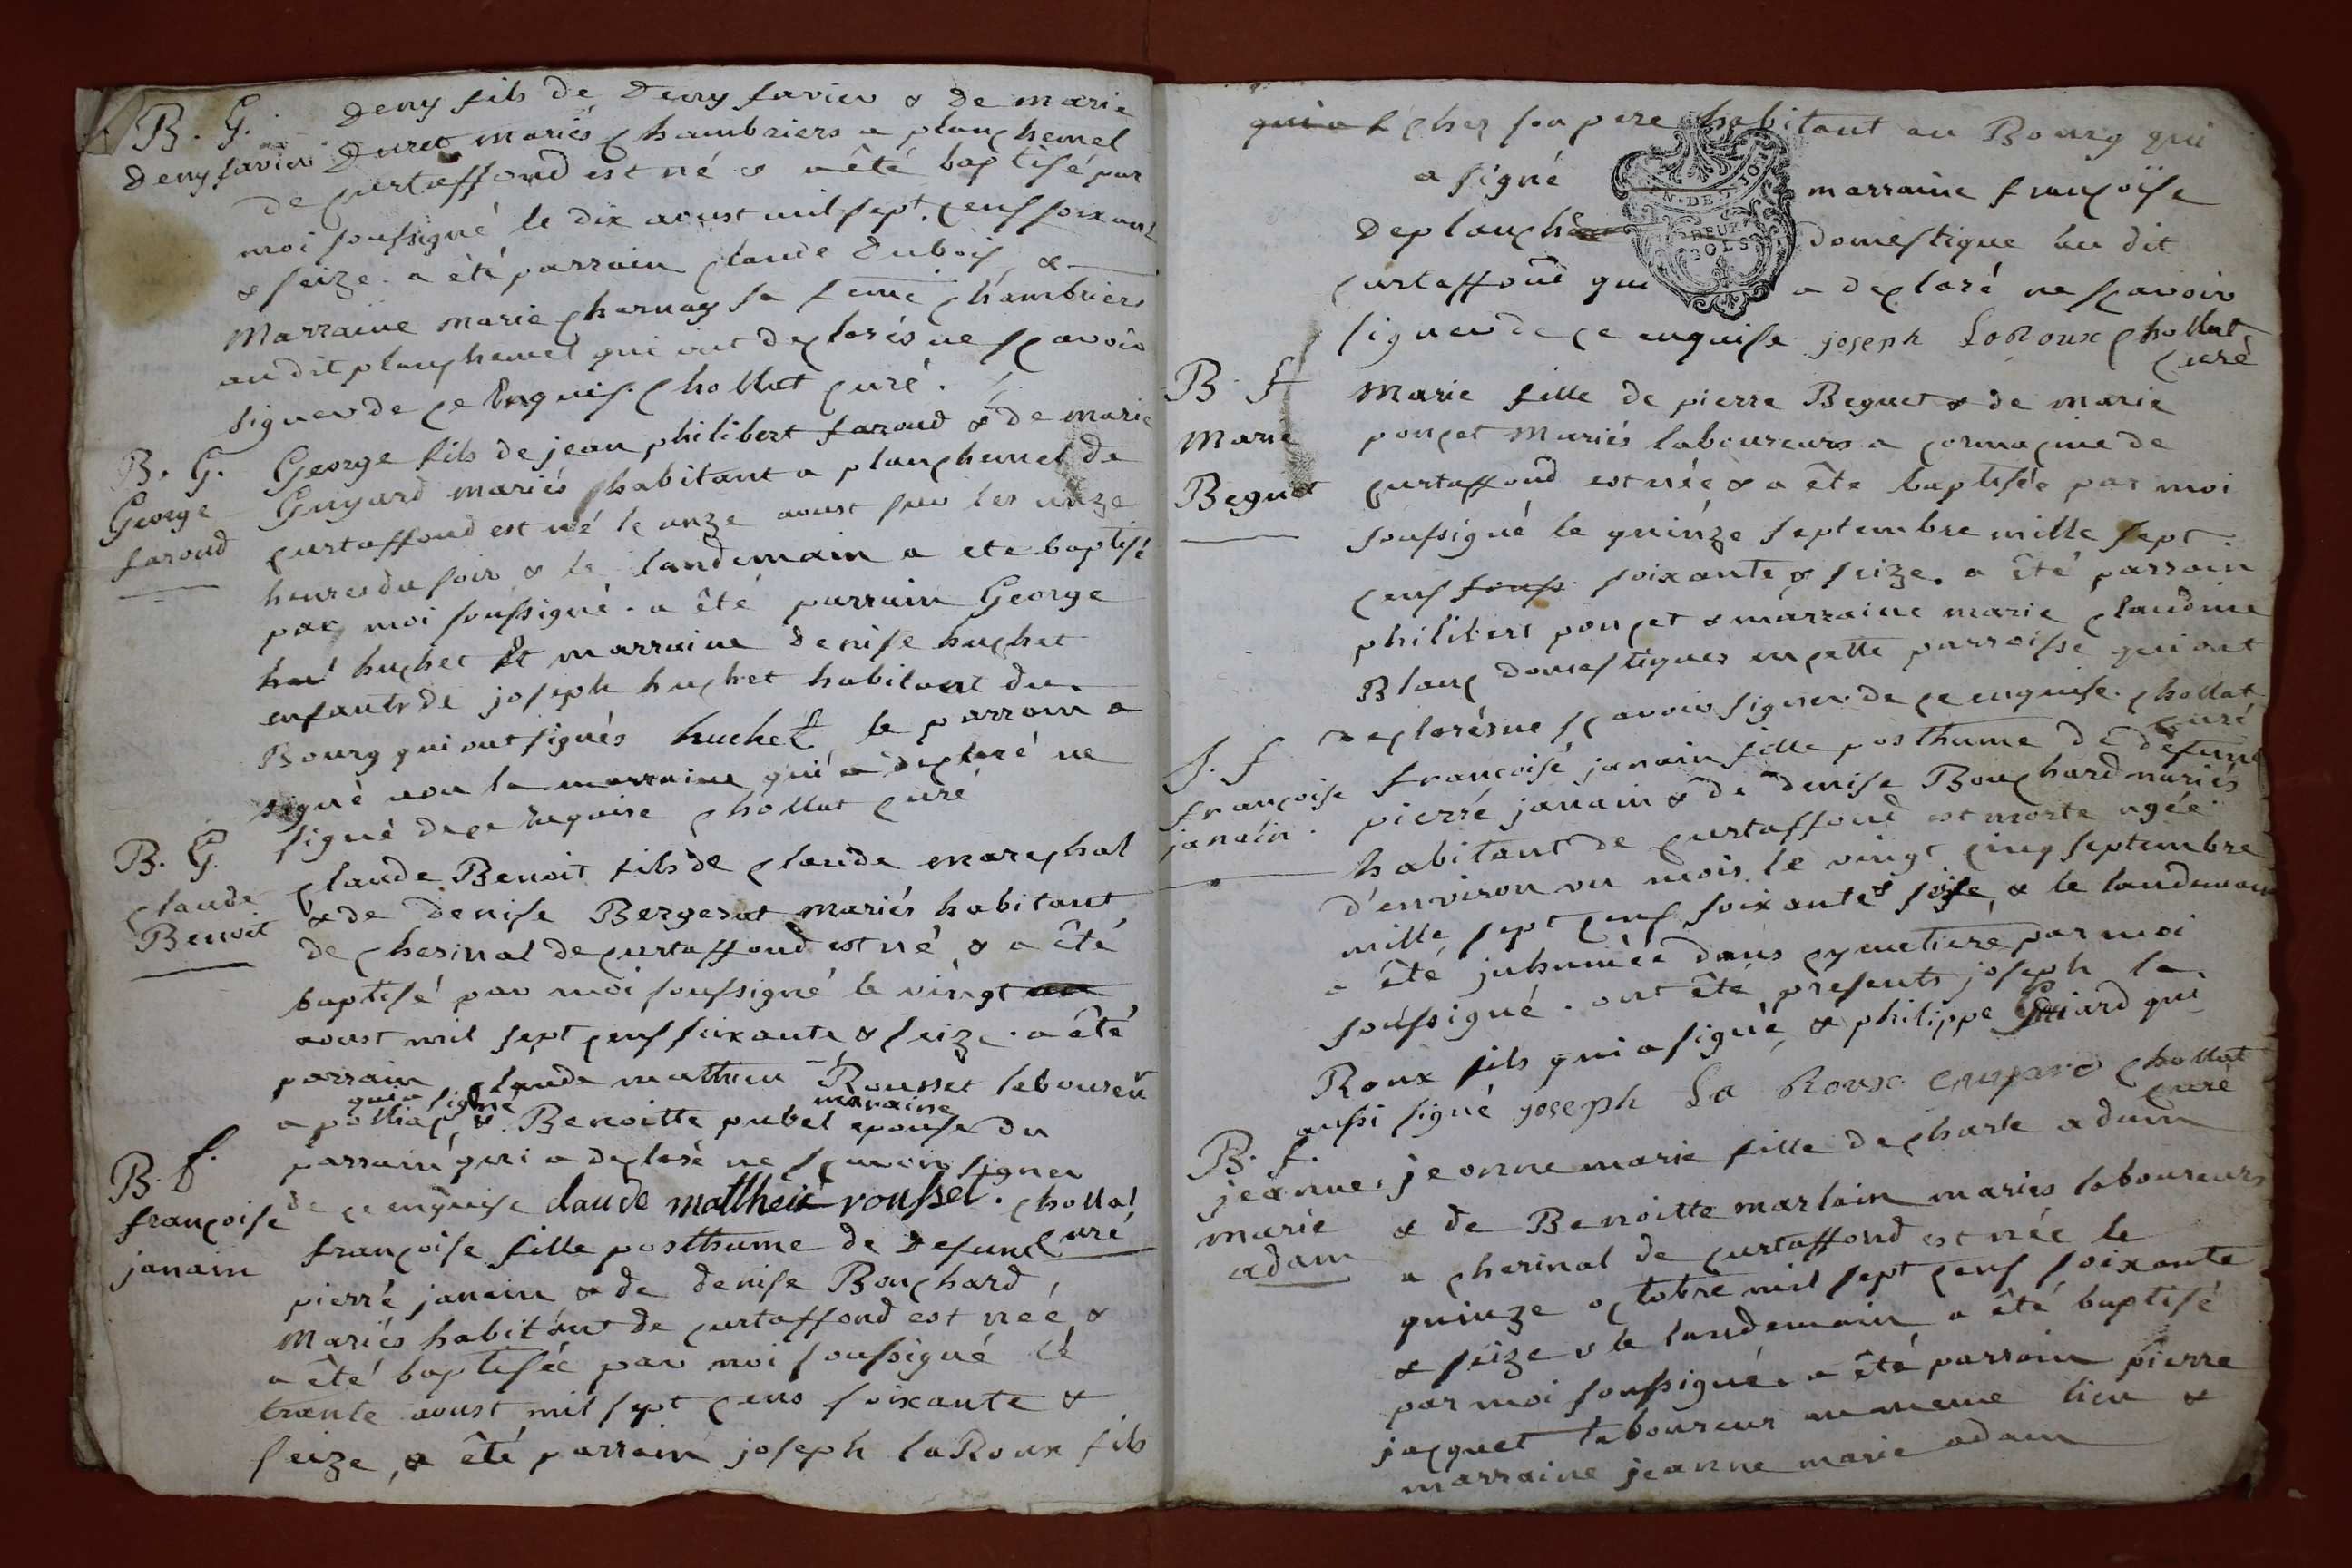 B. G.
Deny favier
Deny fils de Deny favier & de marie
Duret mariés chambriers a planchemel
de curtaffond est né & a été baptisé par
moi soussigné le dix aoust mil sept cens soixant
& seize. a été parrain claude Dubois &
Marraine marie charnay sa feme chambriers
au dit planchemel qui ont declarés ne scavoir
signer de ce Enquis. chollat curé.
B. G.
George
faroud
George fils de jean philibert faroud & de marie
Guyard mariés habitant a planchemel de
curtaffond est né le onze aoust sur les onze
heures du soir & le landemain a ete baptisé
par moi soussigné. a été parrain George
huchet Et marraine denise huchet
enfants de joseph huchet habitant du
Bourg qui ont signés huchet le parrain a
signé non la marraine qui a declaré ne
signé de ce enquise chollat curé
B. G.
claude
Benoit
claude Benoit fils de claude marechal
& de denise Bergerat mariés habitant
de cherinal de curtaffond est né & a été
baptisé par moi soussigné le vingt
aoust mil sept cens soixante & seize. a été
parrain claude mathieu Rousset laboureur
qui a signé maraine
a polliac, & Benoitte pubel epouse du
parrain qui a declaré ne scavoir signer
de ce enquise claude mattheié rousset. chollat
curé
B. f.
françoise
janain
françoise fille posthume de defunc
pierré janain & de denise Bouchard
Mariés habitant de curtaffond est née &
a été baptisée par moi soussigné le
trante aoust mil sept cens soixante &
seize, a été parrain joseph laRoux fils
qui a chez son pere habitant au Bourg qui
a signé marraine françoise
Deplanche domestique au dit
curtaffond qui a declaré ne scavoir
signer de ce enquise joseph LaRoux chollat
curé
B. f
Marie
Beguet
Marie fille de pierre Beguet & de marie
poncet Mariés laboureurs a cormacine de
curtaffond est née & a éte baptisée par moi
soussigné le quinze septembre mille sept
cens souss soixante & seize. a été parrain
philibert poncet & marraine marie claudine
Blanc domestiques en cette parroisse qui ont
declarés ne scavoir signer de ce enquise. chollat
curé
S. f
françoise
janain.
françoisé janain fille posthume de defunc
pierré janain & de denise Bouchard mariés
habitant de curtaffond est morte agée
d'environ un mois le vingt cinq septembre
mille sept cens soixante & seise, & le landemain
a été inhumée dans cymetiere par moi
soussigné. ont été presents joseph la
Roux fils qui a signé, & philippe Guiard qui
aussi signé joseph La Roux Guyard chollat
curé
B. f.
jeanne
marie
adam
jeanne marie fille de charle adam
& de Benoitte marlain mariés laboureurs
a cherinal de curtaffond est née le
quinze octobre mil sept cens soixante
& seize & le landemain a été baptisé
par moi soussigné. a été parrain pierre
jacquet laboureur au meme lieu &
marraine jeanne marie adam